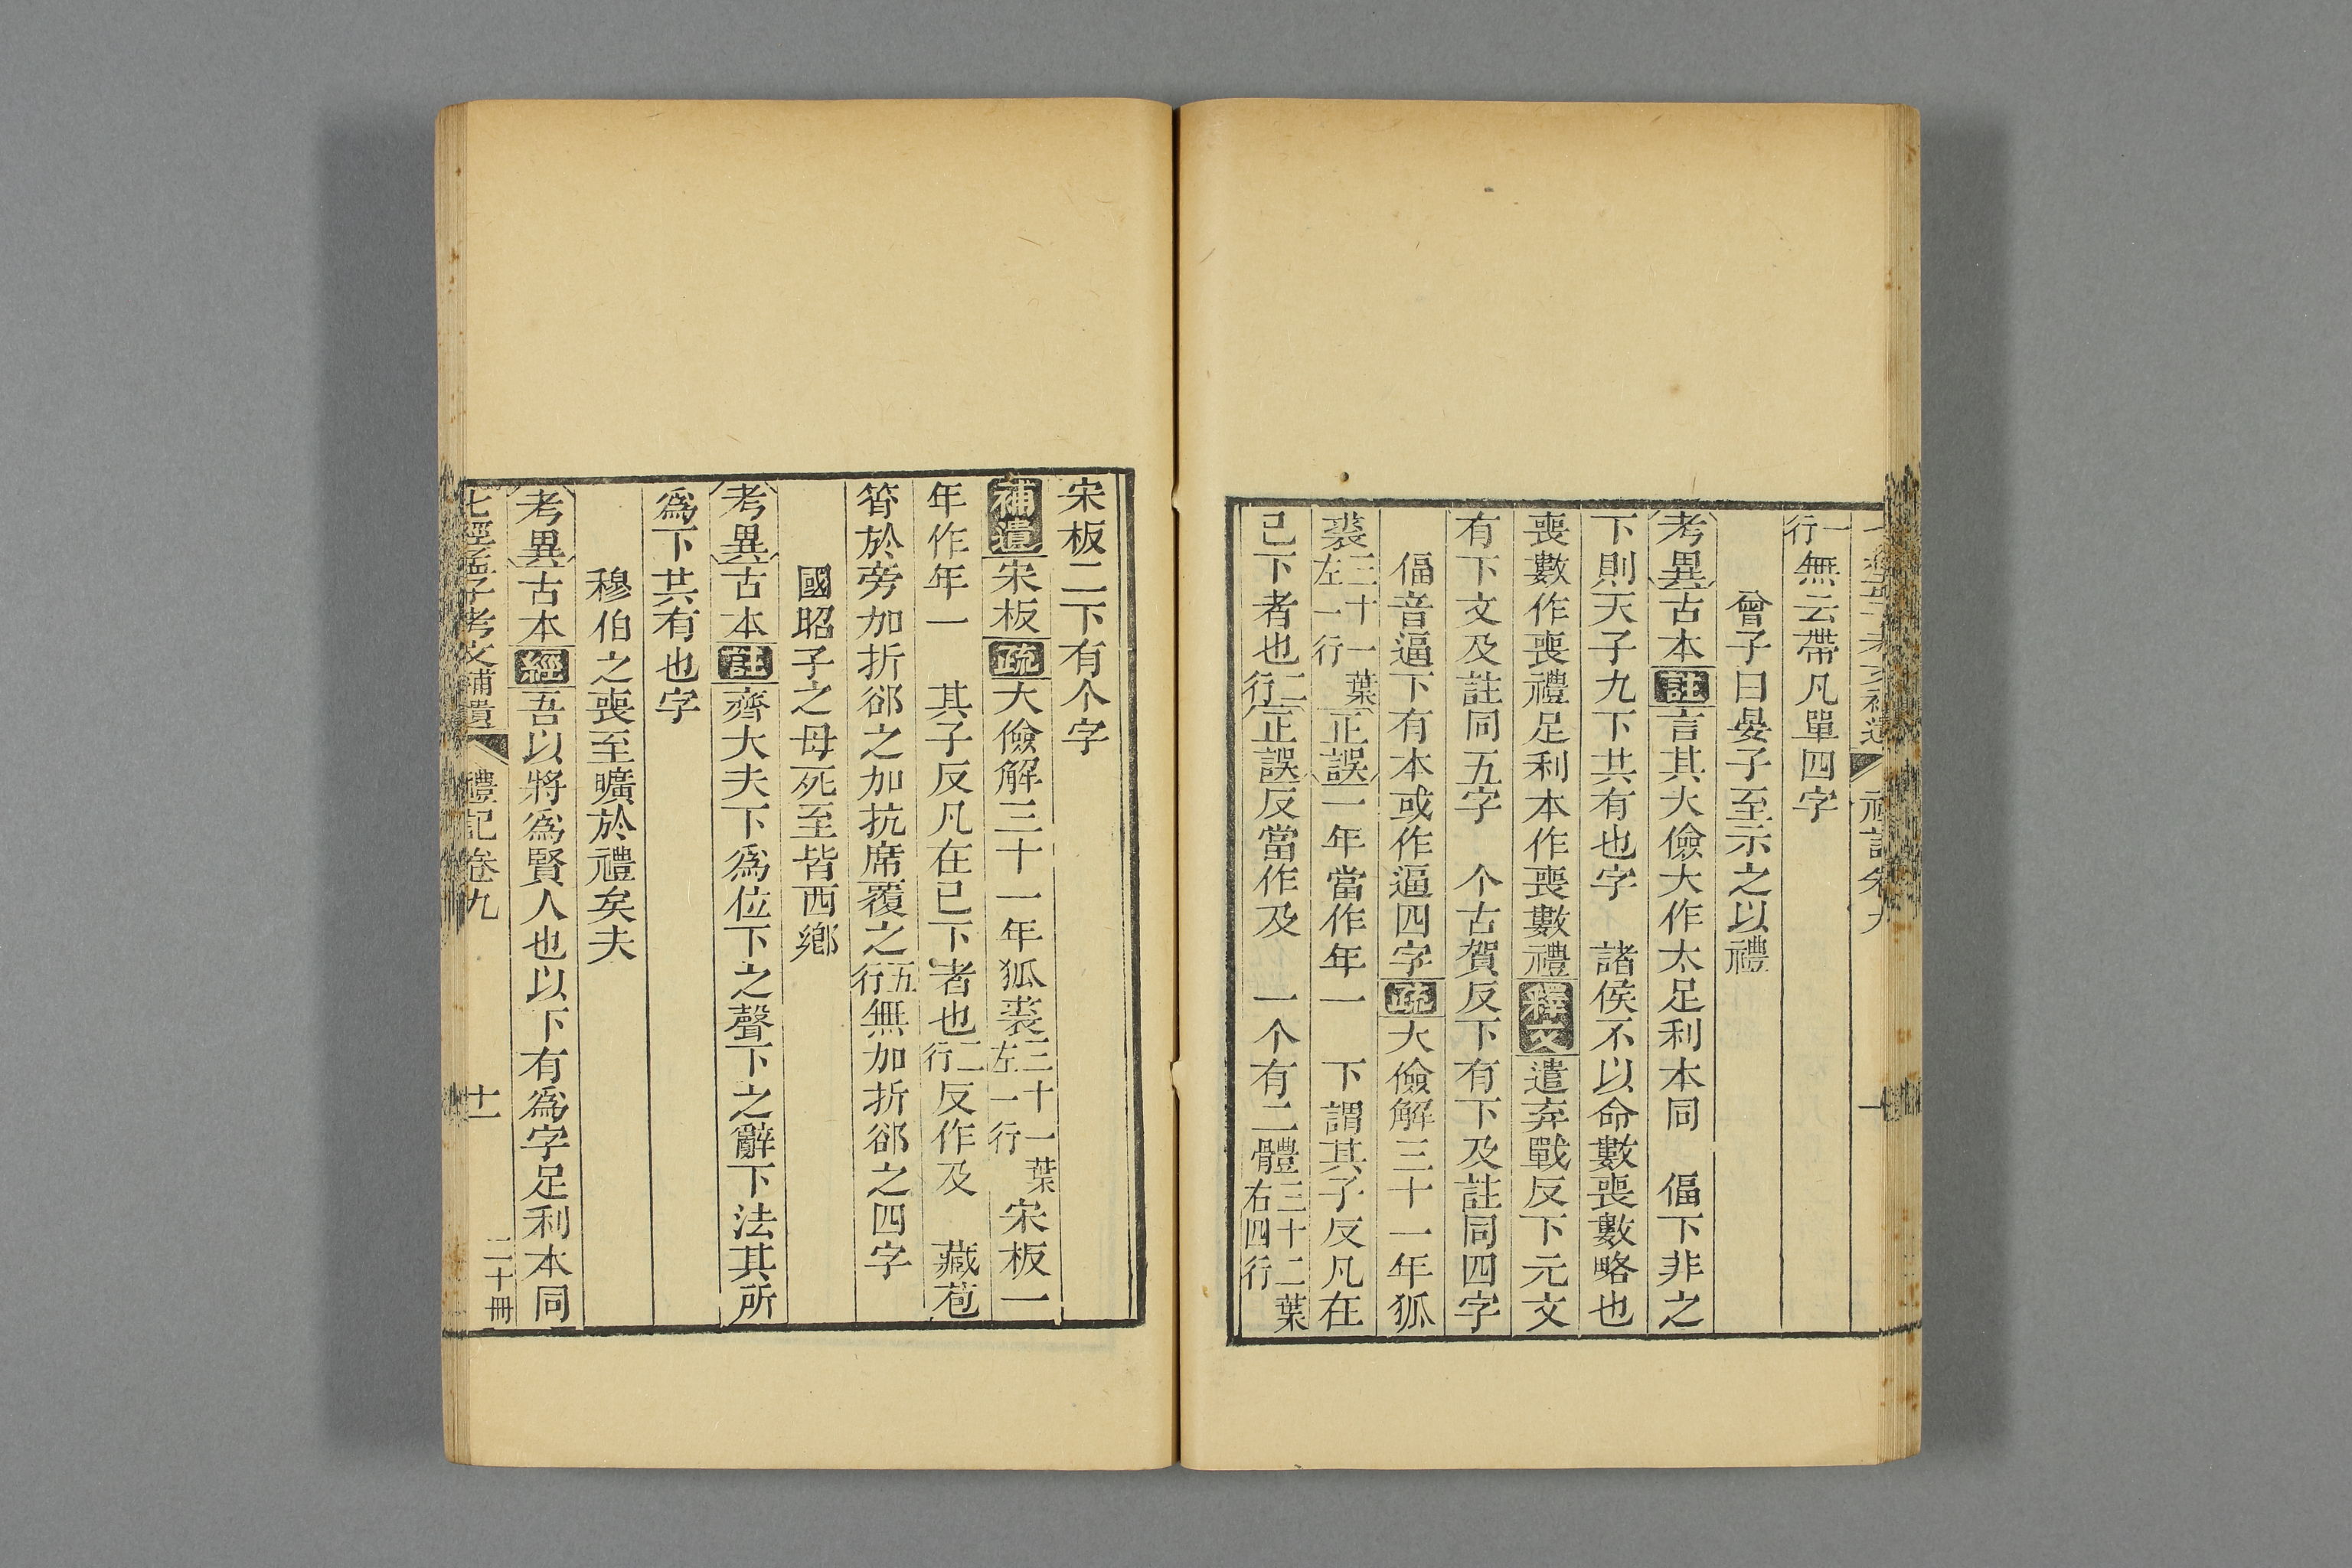 行一無云帶凡單四字
曾子曰晏子至示之以禮
考異古本註言其大儉大作太足利本同 偪下非之
下則天子九下共有也字 諸侯不以命數喪數略也
喪數作喪禮足利本作喪數禮釋文遣弃戰反下元文
有下文及註同五字 个古賀反下有下及註同四字
偪音逼下有本或作逼四字疏大儉解三十一年狐
裘三十一葉左一行正誤一年當作年一 下謂其子反凡在
已下者也二行正誤反當作及 一个有二體三十二葉右四行
宋板二下有个字
補遺宋板疏大儉解三十一年狐裘三十一葉左一行宋板一
年作年一 其子反凡在已下者也二行反作及 藏苞
筲於旁加折郤之加抗席覆之五行無加折郤之四字
國昭子之母死至皆西鄉
考異古本註齊大夫下爲位下之聲下之辭下法其所
爲下共有也字
穆伯之喪至曠於禮矣夫
考異古本經吾以將爲賢人也以下有爲字足利本同
七經孟子考文補遺 禮記卷九 十一 二十冊